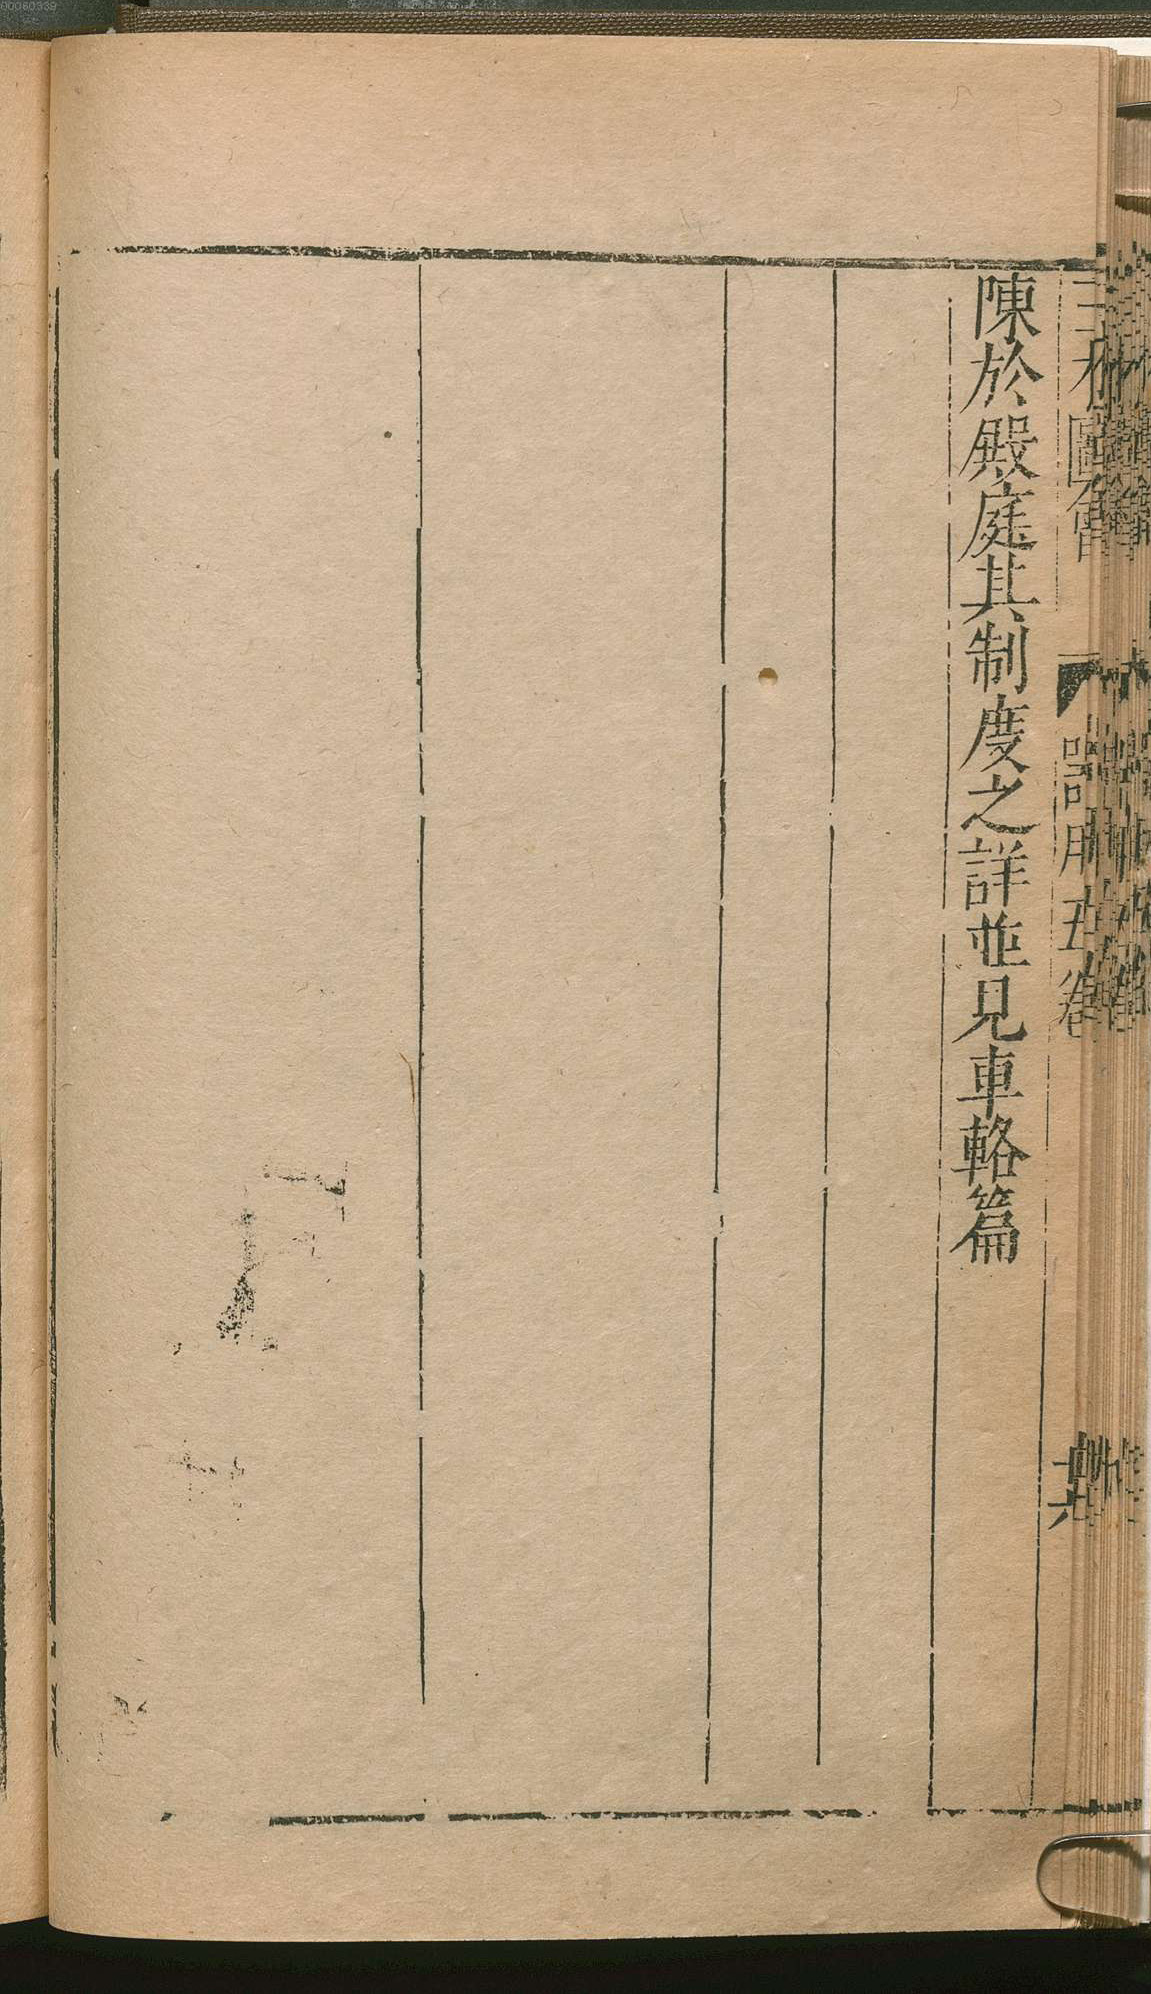 三才圖會
器用五卷
陳於殿庭其制度之詳並見車輅篇
00060339